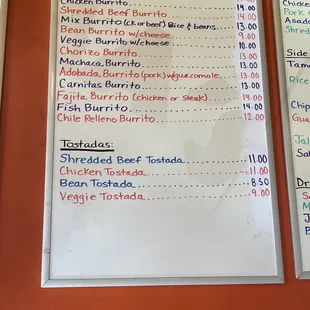 Chicken Burrito.................14.00
Shredded Beef Burrito...........14.00
Mix Burrito (ck or beef) Rice & beans....13.00
Bean Burrito w/cheese...........9.00
Veggie Burrito w/cheese.........10.00
Chorizo Burrito.................13.00
Machaca Burrito.................13.00
Adobada Burrito (pork) w/guacomole...13.00
Carnitas Burrito................13.00
Fajita Burrito (chicken or steak)....14.00
Fish Burrito....................14.00
Chile Relleno Burrito...........12.00
Tostadas:
Shredded Beef Tostada...........11.00
Chicken Tostada.................11.00
Bean Tostada....................8.50
Veggie Tostada..................9.00
Chicke
Pork
Asad
Shred
Side
Tam
Rice
Chip
Gua
Jal
Sal
Dr